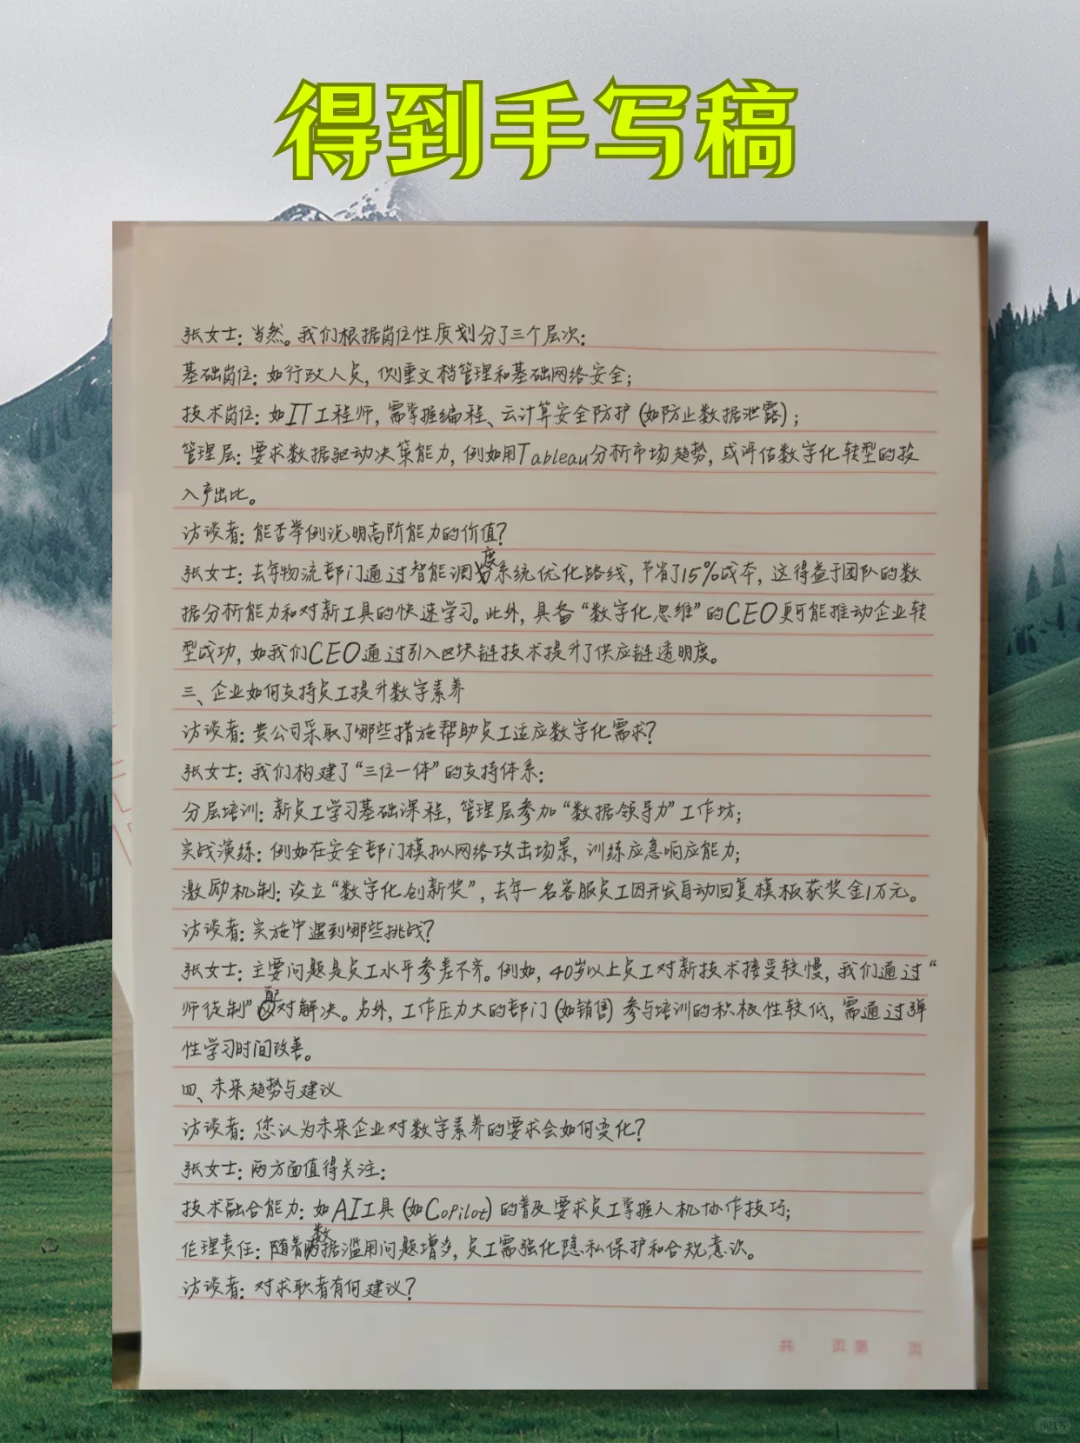 得到手写稿
张女士：当然。我们根据岗位性质划分了三个层次：
基础岗位：如行政人员，侧重文档管理和基础网络安全；
技术岗位：如IT工程师，需掌握编程、云计算安全防护（如防止数据泄露）；
管理层：要求数据驱动决策能力，例如用Tableau分析市场趋势，或评估数字化转型的投
入产出比。
访谈者：能否举例说明高阶能力的价值？
张女士：去年物流部门通过智能调度系统优化路线，节省了15%成本，这得益于团队的数
据分析能力和对新工具的快速学习。此外，具备“数字化思维”的CEO更可能推动企业转
型成功，如我们CEO通过引入区块链技术提升了供应链透明度。
三、企业如何支持员工提升数字素养
访谈者：贵公司采取了哪些措施帮助员工适应数字化需求？
张女士：我们构建了“三位一体”的支持体系：
分层培训：新员工学习基础课程，管理层参加“数据领导力”工作坊；
实战演练：例如在安全部门模拟网络攻击场景，训练应急响应能力；
激励机制：设立“数字化创新奖”，去年一名客服员工因开发自动回复模板获奖金1万元。
访谈者：实施中遇到哪些挑战？
张女士：主要问题是员工水平参差不齐。例如，40岁以上员工对新技术接受较慢，我们通过“
师徒制”配对解决。另外，工作压力大的部门（如销售）参与培训的积极性较低，需通过弹
性学习时间改善。
四、未来趋势与建议
访谈者：您认为未来企业对数字素养的要求会如何变化？
张女士：两方面值得关注：
技术融合能力：如AI工具（如Copilot）的普及要求员工掌握人机协作技巧；
伦理责任：随着数据滥用问题增多，员工需强化隐私保护和合规意识。
访谈者：对求职者有何建议？
共 页 第 页